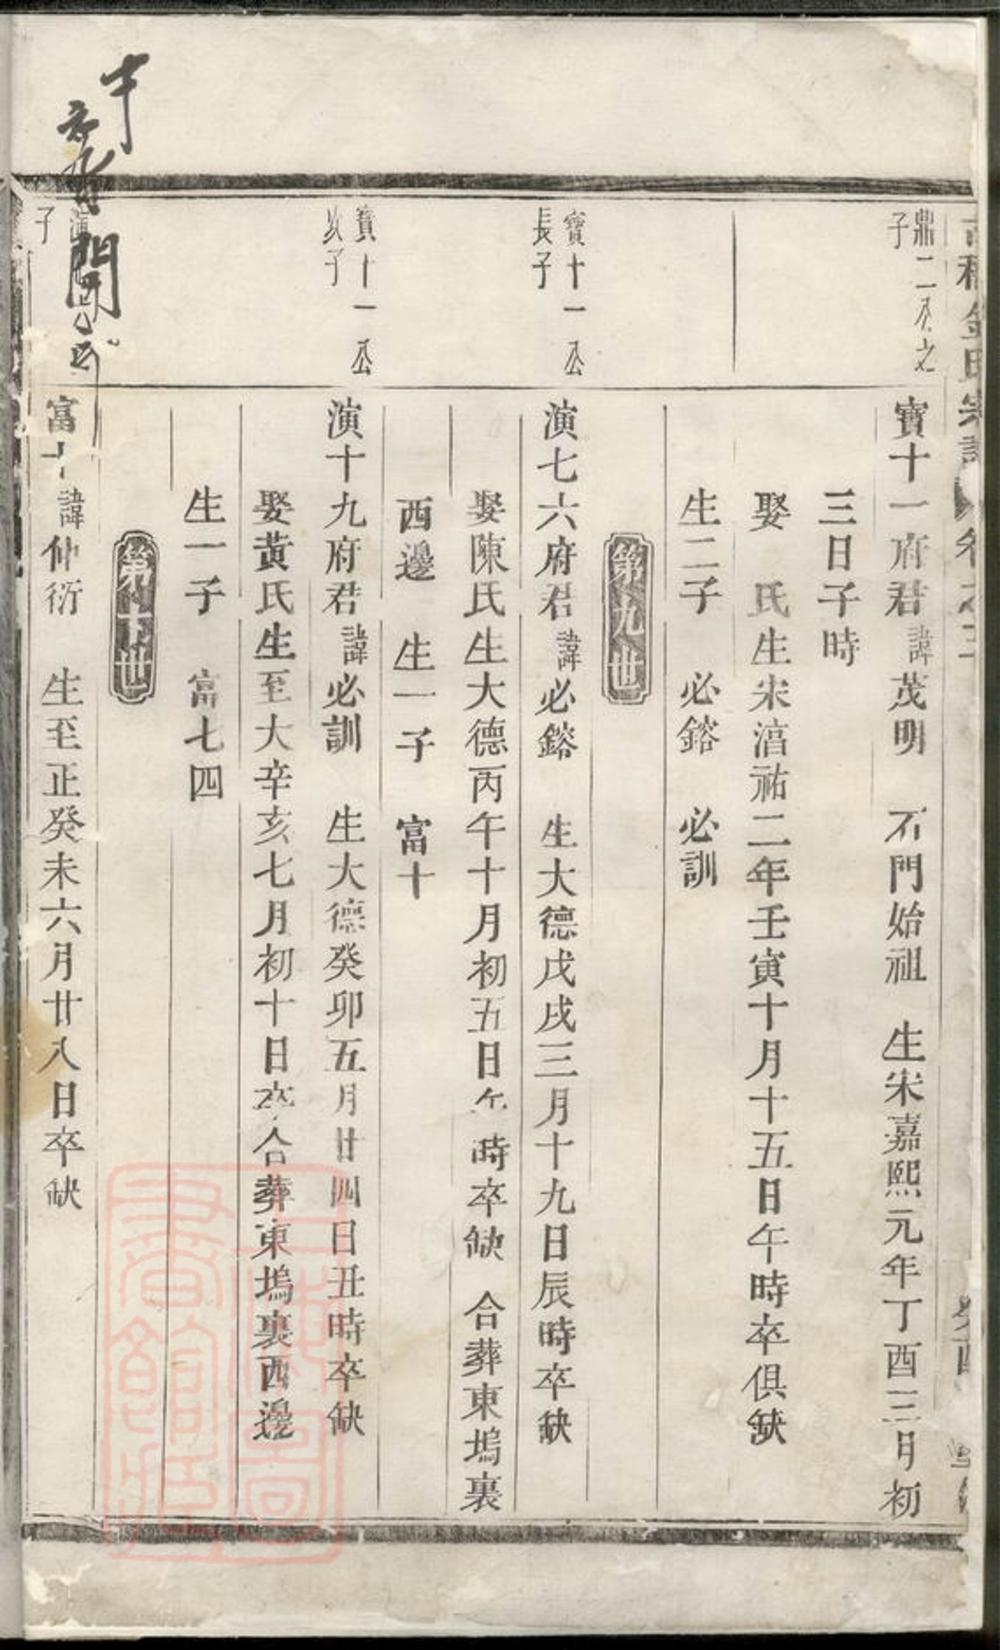 鼎二公之
子
寶十一府君諱茂明　石門始祖　生宋嘉熙元年丁酉三月初
三日子時
娶　氏生宋淳祐二年壬寅十月十五日午時卒俱缺
生二子　必鎔　必訓
第九世
寶十一公
長子
演七六府君諱必鎔　生大德戊戌三月十九日辰時卒缺
娶陳氏生大德丙午十月初五日午時卒缺　合葬東塢裏
西邊　生一子　富十
寶十一公
次子
演十九府君諱必訓　生大德癸卯五月廿四日丑時卒缺
娶黃氏生至大辛亥七月初十日卒合葬東塢裏西邊
生一子　富七四
第十世
子
富十諱仲衍　生至正癸未六月廿八日卒缺